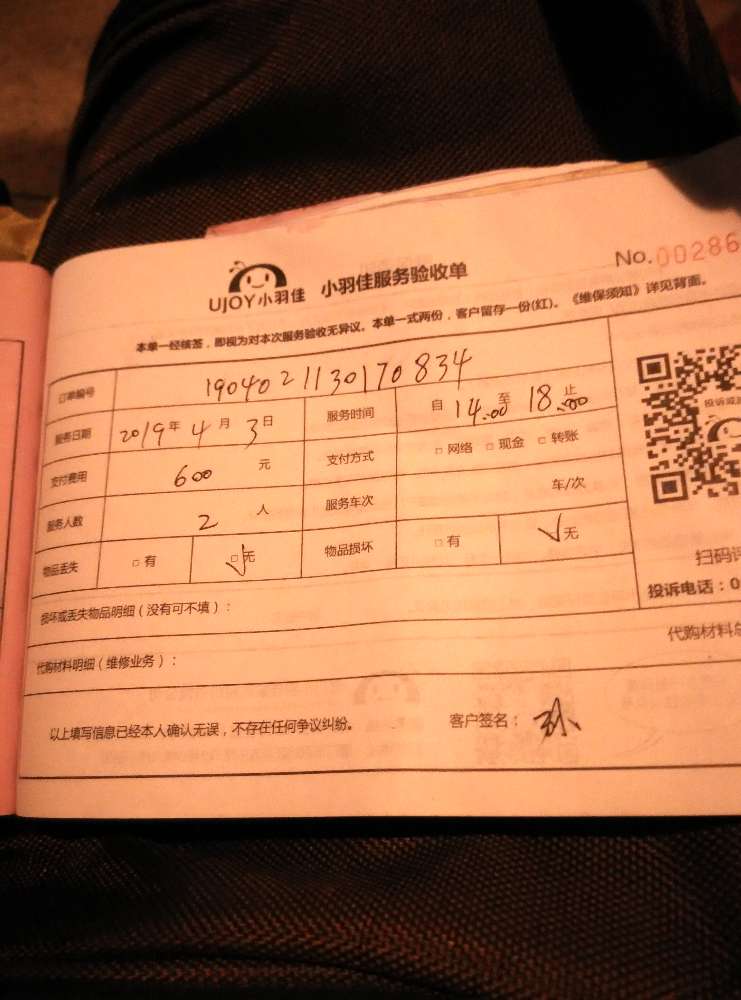 No.00286
UJOY小羽佳 小羽佳服务验收单
本单一经核签，即视为对本次服务验收无异议。本单一式两份，客户留存一份(红)。《维保须知》详见背面。
订单编号 190402113017 0834
服务日期 2019年 4月 3日 服务时间 自 14:00 至 18:00 止
支付费用 600 元 支付方式 □ 网络 □ 现金 □ 转账
服务人数 2 人 服务车次 车/次
物品丢失 □ 有 □无 物品损坏 □ 有 无
损坏或丢失物品明细（没有可不填）：
代购材料明细（维修业务）：
以上填写信息已经本人确认无误，不存在任何争议纠纷。 客户签名：孙
扫码评
投诉电话：0
代购材料总